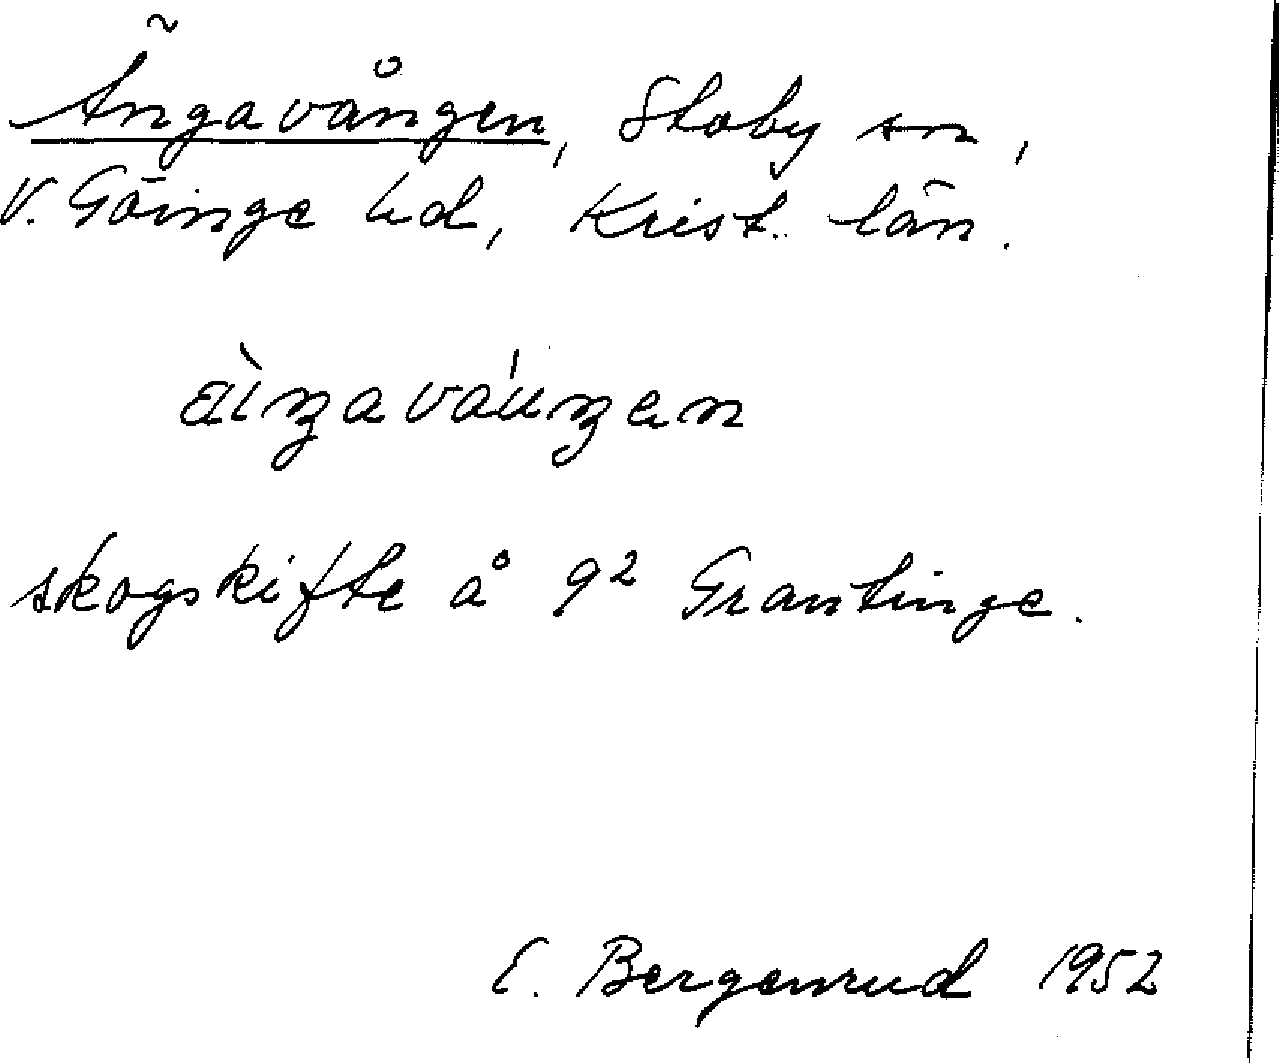 Ängavången, Stoby sn,
V. Göinge hd, Krist. län.
æ̀iŋavåuŋen
skogskifte å 9² Grantinge.
E. Bergenrud 1952